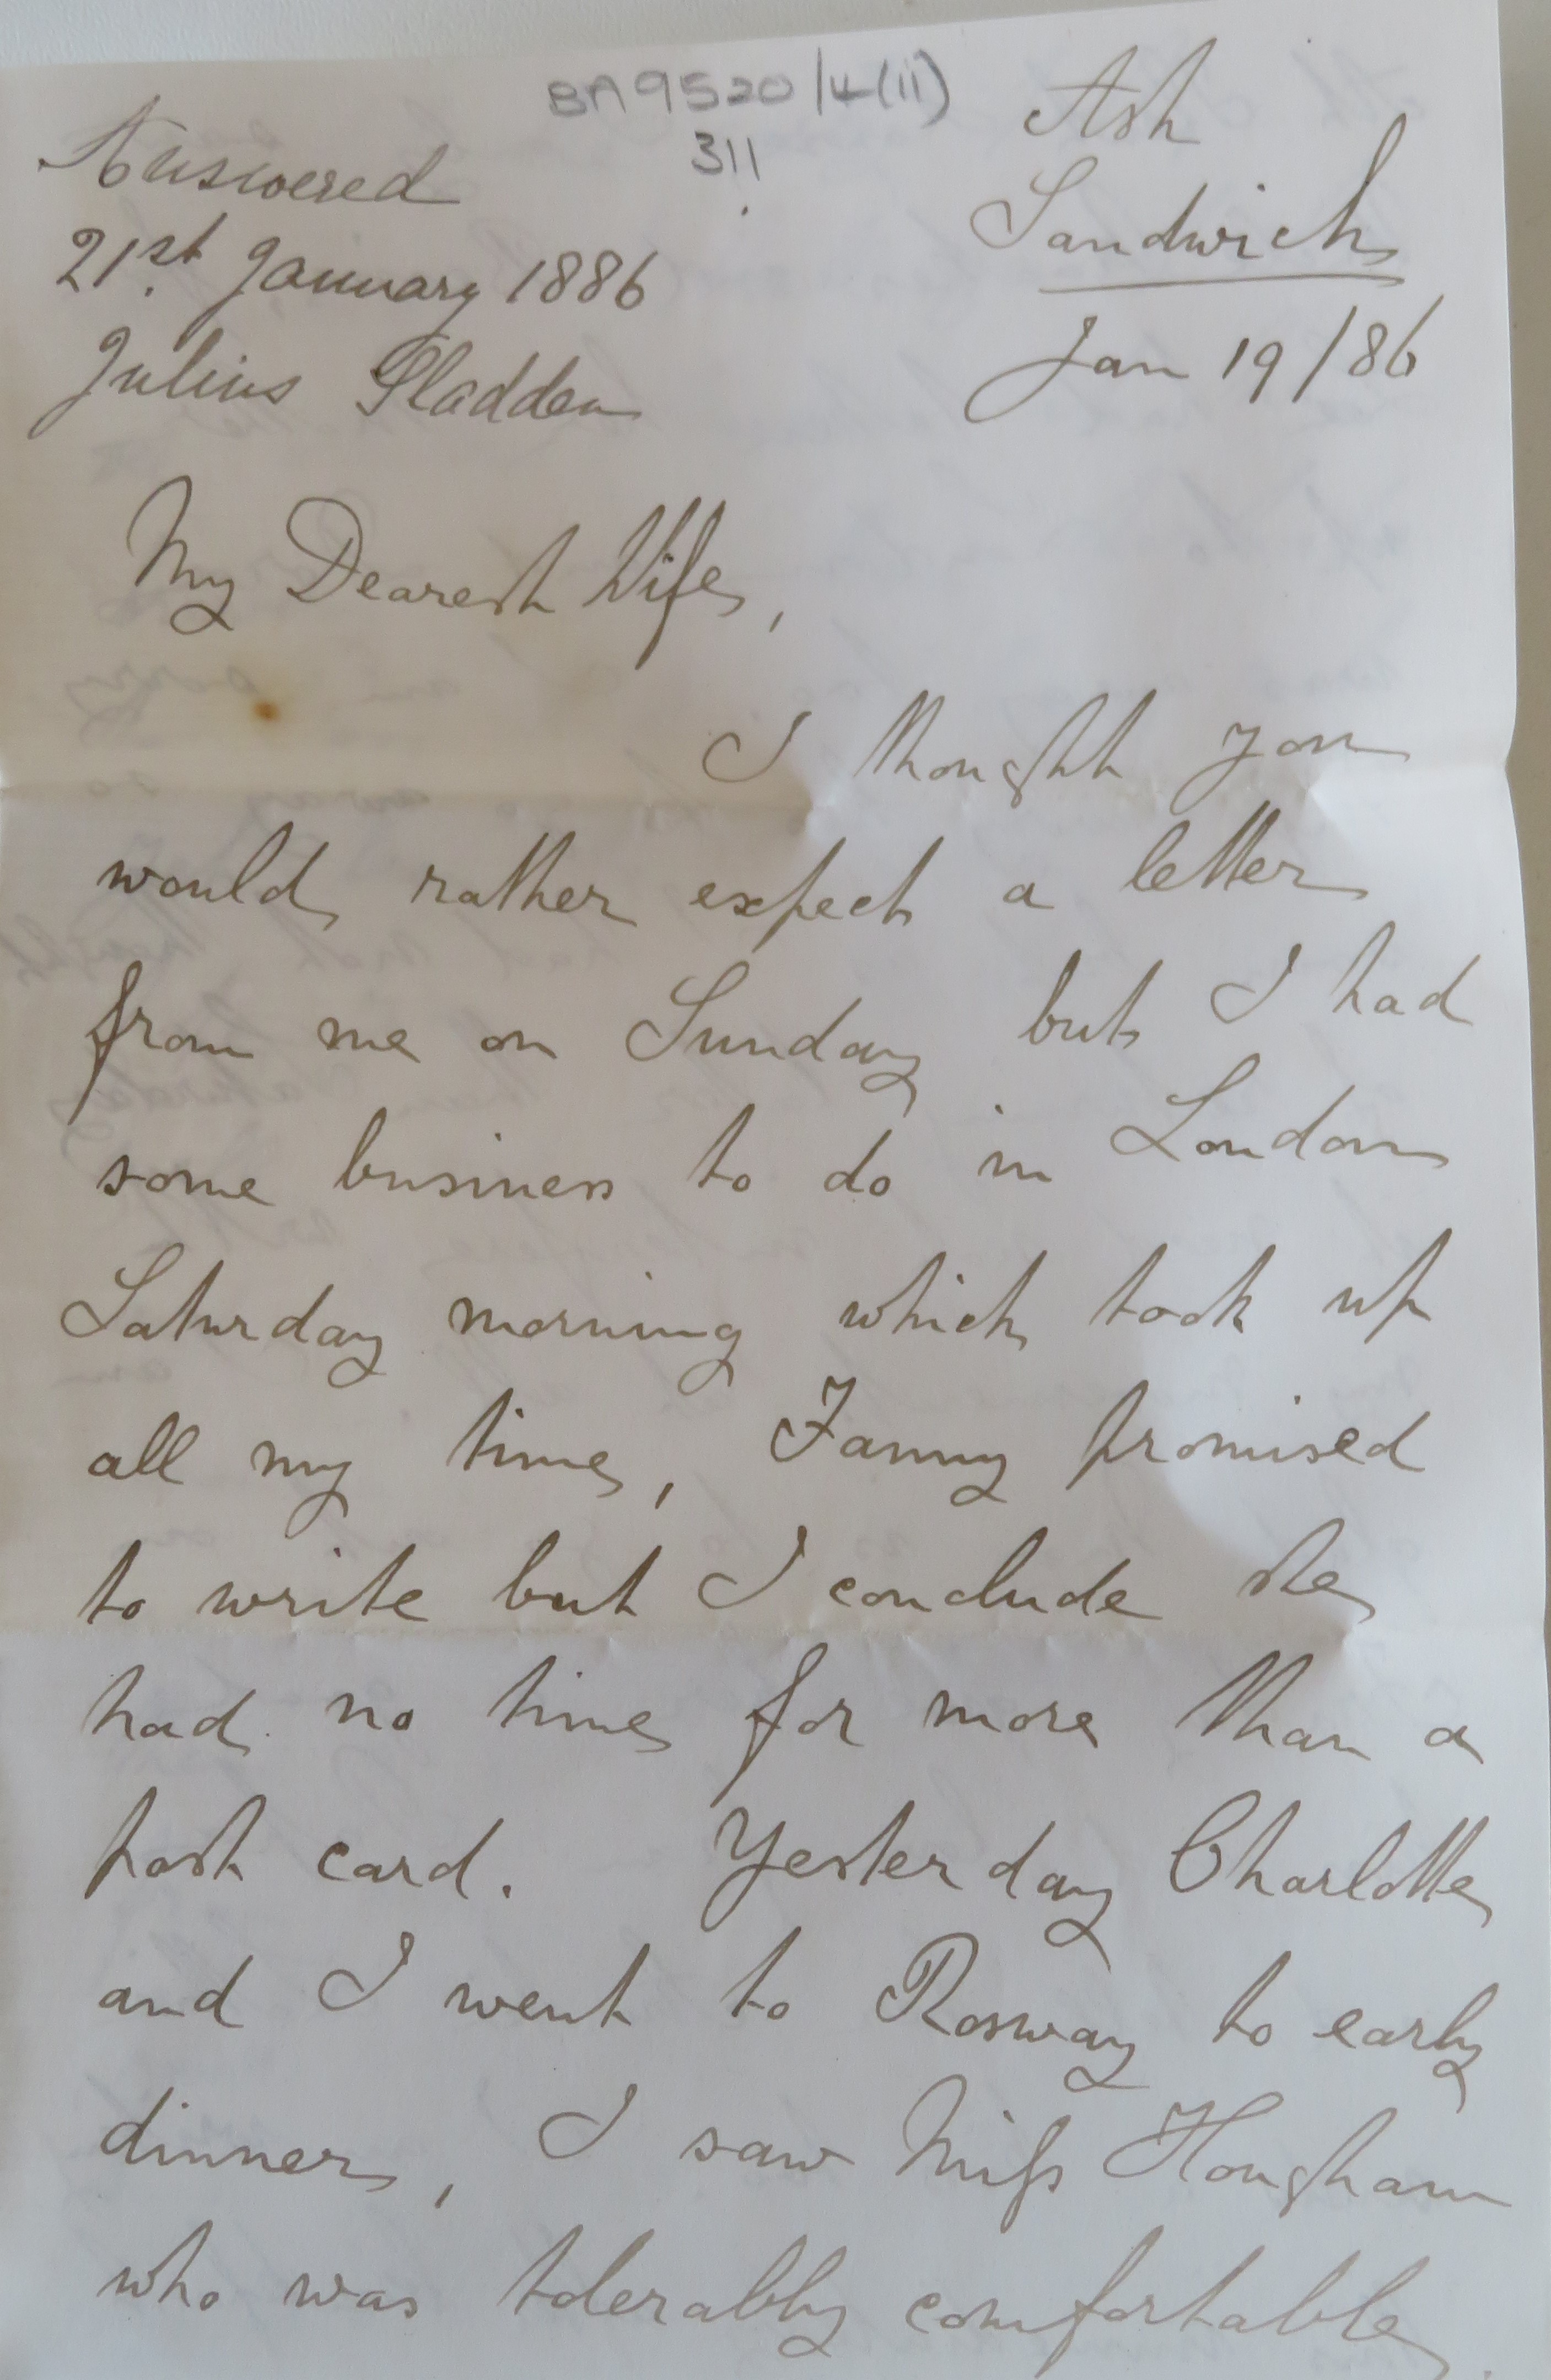 BA9520/4(ii)
311
Answered
21st January 1886
Julius Sladden
Ash
Sandwich
Jan 19/86
My Dearest Wife,
I thought you
would rather expect a letter
from me on Sunday but I had
some business to do in London
Saturday morning which took up
all my time, Fanny promised
to write but I conclude she
had no time for more than a
post card. Yesterday Charlotte
and I went to Rosway to early
dinner, I saw Miss Hougham
who was tolerably comfortable